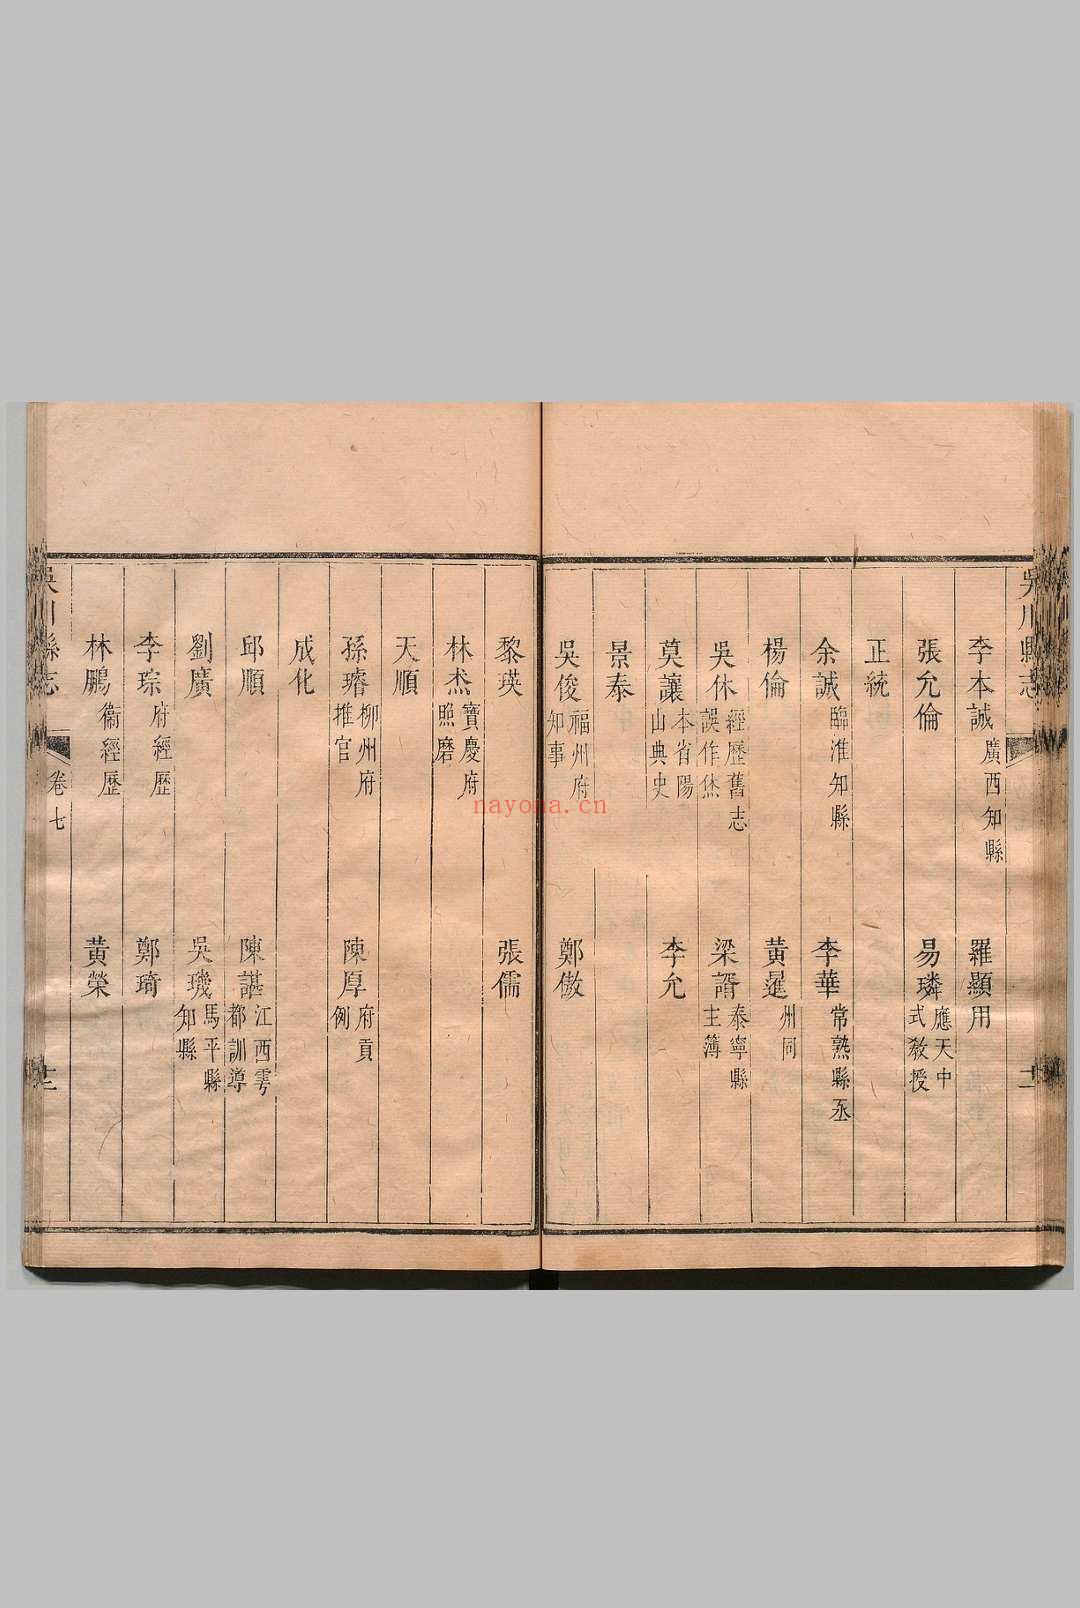 吳川縣志
李本誠廣西知縣　羅顯用
張允倫　易璘應天中式教授
正統
余誠臨淮知縣　李華常熟縣丞
楊倫　黃暹州同
吳休經歷舊志誤作烋　梁諝泰寧縣主簿
莫讓本省陽山典史　李允
景泰
吳俊福州府知事　鄭傲
黎瑛　張儒
林杰寶慶府照磨
天順
孫璿柳州府推官　陳厚府貢例
成化
邱順　陳諶江西雩都訓導
劉廣　吳璣馬平縣知縣
李琮府經歷　鄭琦
林鵬衞經歷　黃榮
吳川縣志　卷七
nayona.cn